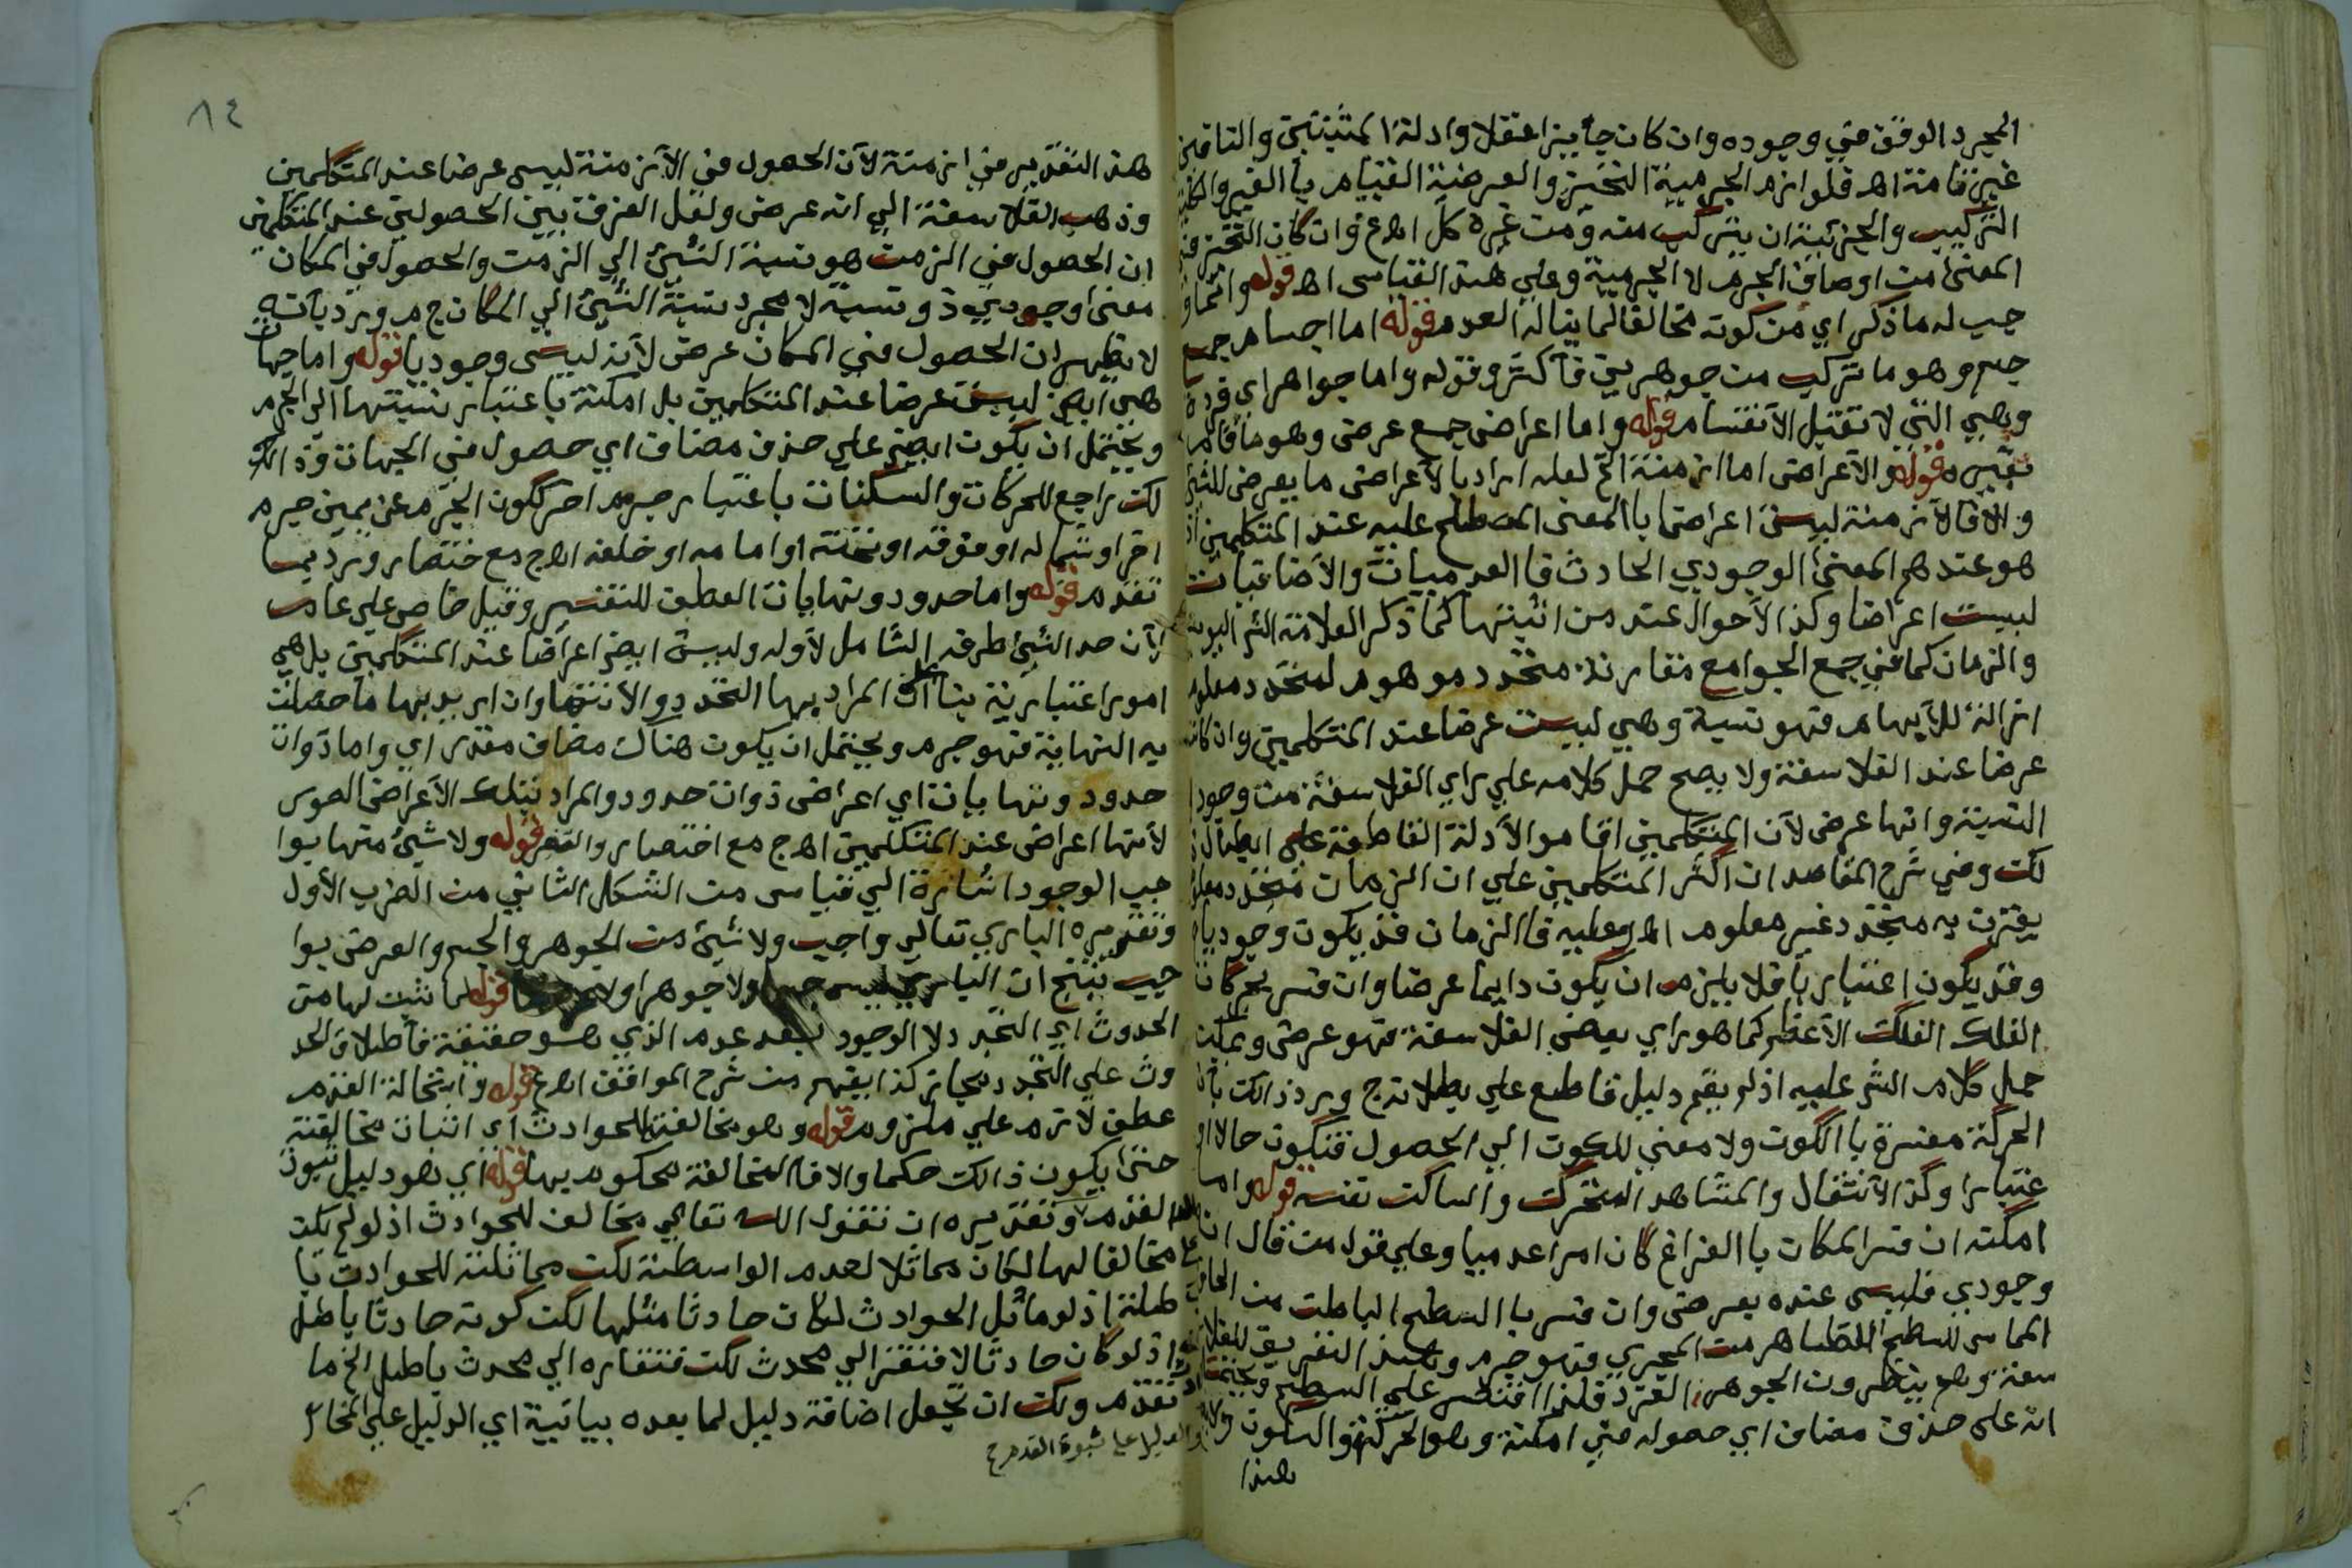 المجرد الوقف في وجوده وان كان جايزا عقلا وادلة المثبتين والنافين
غير تامة اهـ فلوازم الجرمية التحيز والعرضية القيام باالغير والكلية
التركيب والجزئية ان يتركب منه ومن غيره كل اهـ ع وان كان التحيز في
المعنى من اوصاف الجرم لا الجرمية وعلي هذا القياس اهـ قوله وانما و
جب له ما ذكر اي من كونه مخالفا لما يناله العدم قوله اما اجسام جمع
جسم وهو ما تركب من جوهرين فأكثر وقوله واما جواهر اي فردة
وهي التي لا تقبل الأنقسام قوله واما اعراض جمع عرض وهو ما قام
بغيره قوله والأعراض اما ازمنة الخ لعله اراد بالأعراض ما يعرض للشئ
والا فالأزمنة ليست اعراضا باالمعنى المصطلح عليه عند المتكلمين اذ
هو عندهم المعنى الوجودي الحادث فاالعدميات والأضافيات
ليست اعراضا وكذا الأحوال عند من اثبتها كما ذكر العلامة الشر
والزمان كما في جمع الجوامع مقارنة متجدد موهوم لمتجدد معلوم
ازالة للأيهام فهو نسبة وهي ليست عرضا عند المتكلمين وان كان
عرضا عند الفلاسفة ولا يصح حمل كلامه علي راي الفلاسفة من وجود
النسبة وانها عرض لأن المتكلمين اقاموا الأدلة القاطعة علي ابطال ذ
لك وفي شرح المقاصد ان اكثر المتكلمين علي ان الزمان متجدد معلوم
يقترن به متجدد غير معلوم اهـ وعليه فاالزمان قد يكون وجوديا
وقد يكون اعتباريا فلا يلزم ان يكون دايما عرضا وان فسر بحركات
الفلك الفلك الأعظم كما هو راي بعض الفلاسفة فهو عرض ويمكن
حمل كلام الشر عليه اذ لم يقم دليل قاطع علي بطلانه ج ويرد ذالك بان
الحركة مفسرة باالكون ولا معني للكون الي الحصول فتكون حالا او
عتبارا وكذا الأنتقال والمشاهد المتحرك والساكن نفسه قوله واما
امكنة ان فسر المكان باالفراغ كان امرا عدميا وعلي قول من قال انه
وجودي فليس عنده بعرض وان فسر باالسطح الباطن من الحاوي
المماس للسطح الظاهر من المحوي فهو جرم وهذا التفريق للفلا
سفة وهم ينظرون الجوهر الفرد فلذا اقتصر علي السطح ويحتمل
انه علي حذف مضاف اي حصوله في امكنة وهو الحركة والسكون
هذا
٨٤
هذا التقدير في ازمنة لأن الحصول في الأزمنة ليس عرضا عند المتكلمين
وذهب الفلاسفة الي انه عرض ولعل الفرق بين الحصولين عند المتكلمين
ان الحصول في الزمن هو نسبة الشئ الي الزمن والحصول في المكان
معنى وجودي ذو نسبة لا مجرد نسبة الشئ الي المكان ج م ويرد بأنه
لا يظهر ان الحصول في المكان عرض لأنه ليس وجوديا قوله واما جهات
هي ايض ليست عرضا عند المتكلمين بل امكنة باعتبار نسبتها الي الجرم
ويحتمل ان يكون ايض علي حذف مضاف اي حصول في الجهات وذا
لك راجع للحركات والسكنات باعتبار جرم اخر ككون الجرم عن يمين جرم
اخر او شماله او فوقه او تحته او امامه او خلفه اهـ ج مع ختصار ويرد بما
تقدم قوله واما حدود ونهايات العطف للتفسير وقيل خاص علي عام
لأن حد الشئ طرفه الشامل لأوله وليست ايض اعراضا عند المتكلمين بل هي
امور اعتبارية بنا علي ان المراد بها التحدد والأنتها وان اريد بها ما حصلت
به النهاية فهو جرم ويحتمل ان يكون هناك مضاف مقدر اي واما ذوات
حدود ونهايات اي اعراض ذوات حدود والمراد بتلك الأعراض الصور
لأنها اعراض عند المتكلمين اهـ ج مع اختصار والتغير قوله ولا شئ منها بوا
جب الوجود اشارة الي قياس من الشكل الثاني من الضرب الأول
وتقريره الباري تعالي واجب ولا شئ من الجوهر والجسم والعرض بوا
جب ينتج ان الباري ليس جسما ولا جوهرا ولا عرضا قوله لما ثبت لها من
الحدوث اي التجدد لا الوجود بعد عدم الذي هو حقيقة فأطلاق الحد
وث علي التجدد مجاز كذا يفهم من شرح المواقف اهـ ع قوله واستحالة القدم
عطف لازم علي ملزوم قوله وهو مخالفته للحوادث اي اثبات مخالفته
حتى يكون ذالك حكما والا فاالمخالفة محكوم بها قوله اي هو دليل ثبوت
القدم وتقديره ان تقول الله تعالي مخالف للحوادث اذ لو لم يكن
مخالفا لها لكان مماثلا لعدم الواسطة لكن مماثلته للحوادث با
طلة اذ لو ماثل الحوادث لكان حادثا مثلها لكن كونه حادثا باطل
اذ لو كان حادثا لافتقر الي محدث لكن فتقاره الي محدث باطل الخ ما
تقدم ولك ان تجعل اضافة دليل لما بعده بيانية اي الدليل علي المخا